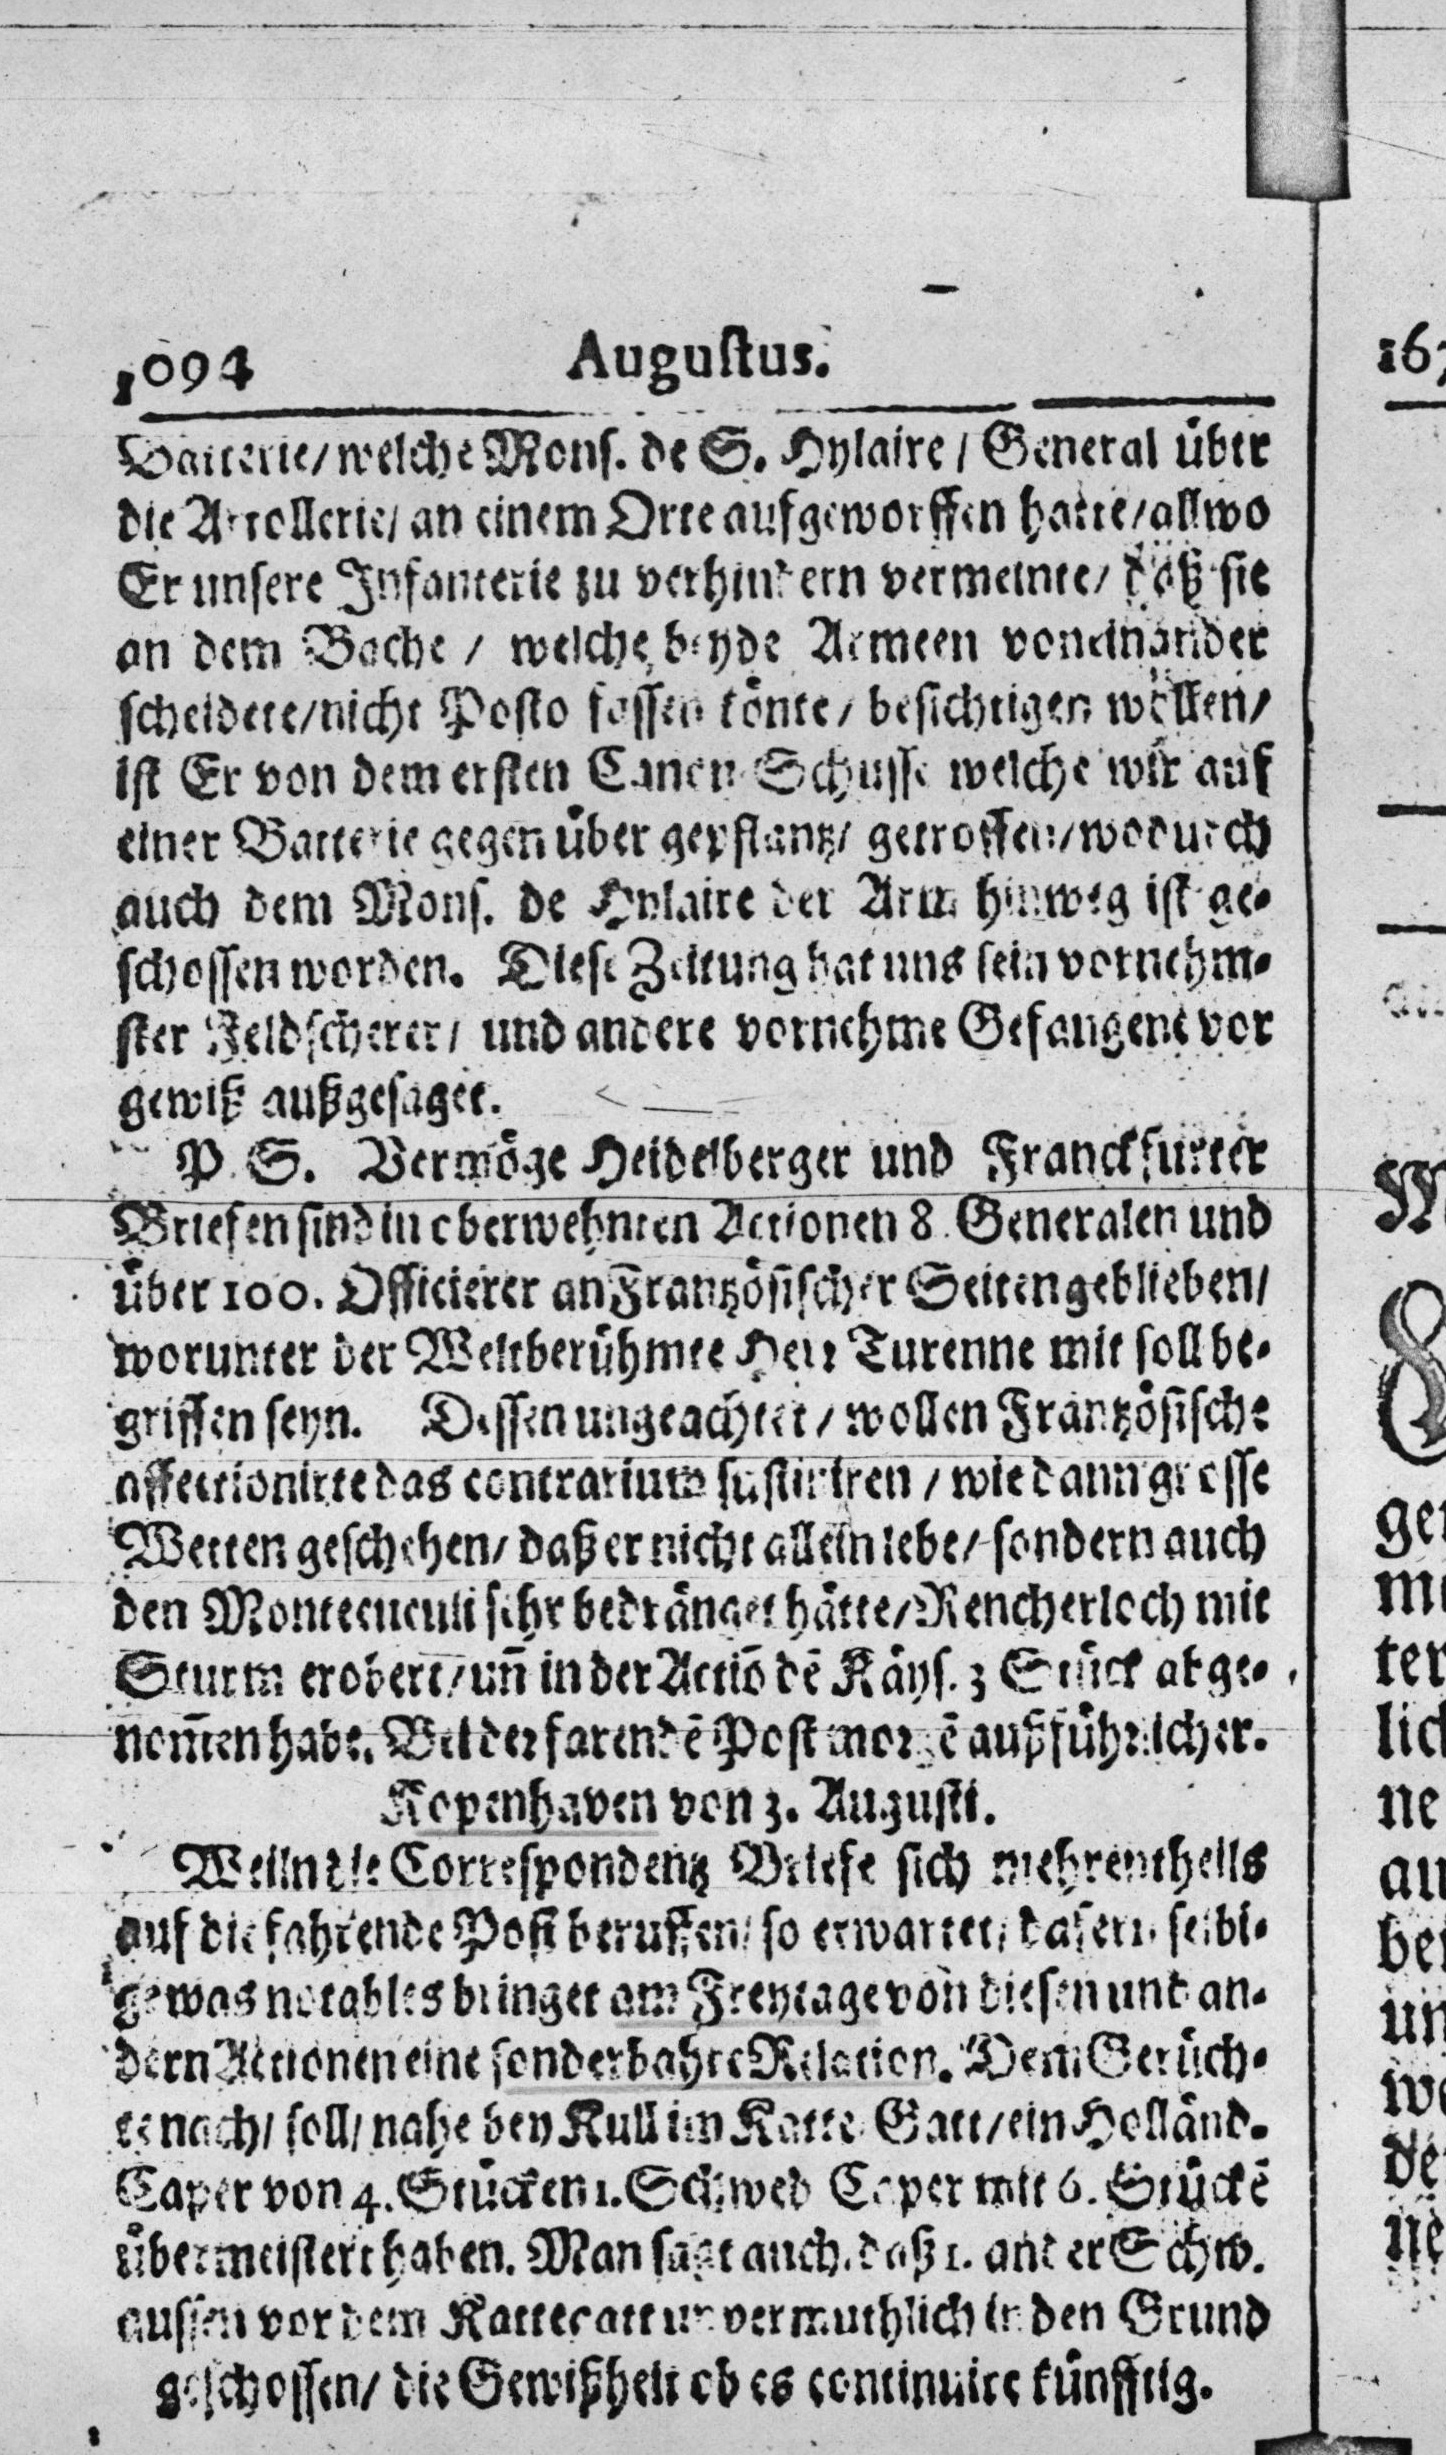 1094 Augustus.
Batterie/ welche Mons. de S. Hylaire / General über
die Artollerie/ an einem Orte aufgeworffen hatte/ allwo
Er unsere Infanterie zu verhindern vermeinte/ daß sie
an dem Bache / welche beyde Armeen voneinander
scheidete/ nicht Posto fassen könte/ besichtigen wöllen/
ist Er von dem ersten Canon-Schusse welche wir auf
einer Batterie gegen über gepflantz/ getroffen/ wodurch
auch dem Mons. de Hylaire der Arm hinweg ist ge-
schossen worden. Diese Zeitung hat uns sein vornehm-
ster Feldscherer/ und andere vornehme Gefangene vor
gewiß außgesaget.
P. S. Vermöge Heidelberger und Franckfurter
Briefen sind in oberwehnten Actionen 8. Generalen und
über 100. Officierer an Frantzösischer Seiten geblieben/
worunter der Weltberühmte Herr Turenne mit soll be-
griffen seyn. Dessen ungeachtet / wollen Frantzösische
affectionirte das contrarium sustiniren / wie dann grosse
Wetten geschehen/ daß er nicht allein lebe/ sondern auch
den Montecuculi sehr bedränget hätte/ Rencherloch mit
Sturm erobert/ uñ in der Actiõ dẽ Käys. 3 Stück abge-
nom̃en habe. Bei der farendẽ Post morgẽ außführlicher.
Kopenhaven von 3. Augusti.
Weiln die Correspondentz Briefe sich mehrentheils
auf die fahrende Post beruffen/ so erwartet/ dafern selbi-
ge was notables bringet am Freytage von diesen und an-
dern Actionen eine sonderbahre Relation. Dem Gerüch-
te nach/ soll/ nahe bey Kull im Katte Gatt/ ein Holländ.
Caper von 4. Stücken 1. Schwed Caper mit 6. Stückẽ
übermeistert haben. Man saget auch, daß 1. ander Schw.
aussen vor dem Kattegatt vermuthlich in den Grund
geschossen/ die Gewißheit ob es continuire künfftig.
167